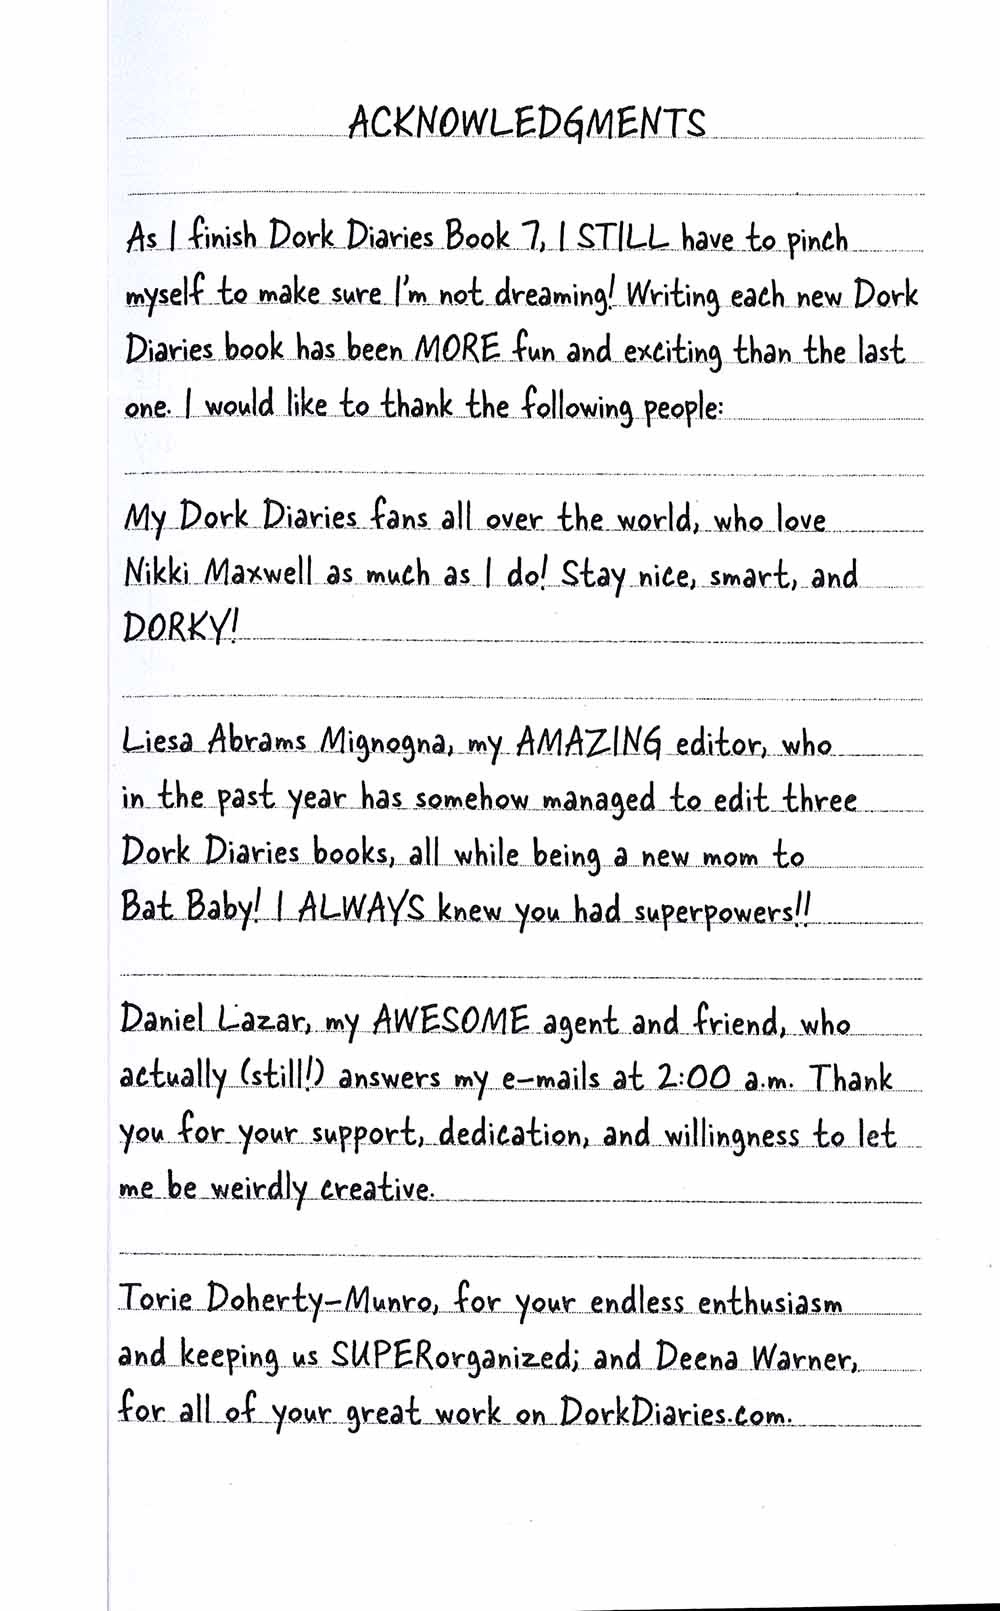 ACKNOWLEDGMENTS
As I finish Dork Diaries Book 7, I STILL have to pinch
myself to make sure I'm not dreaming! Writing each new Dork
Diaries book has been MORE fun and exciting than the last
one. I would like to thank the following people:
My Dork Diaries fans all over the world, who love
Nikki Maxwell as much as I do! Stay nice, smart, and
DORKY!
Liesa Abrams Mignogna, my AMAZING editor, who
in the past year has somehow managed to edit three
Dork Diaries books, all while being a new mom to
Bat Baby! I ALWAYS knew you had superpowers!!
Daniel Lazar, my AWESOME agent and friend, who
actually (still!) answers my e-mails at 2:00 a.m. Thank
you for your support, dedication, and willingness to let
me be weirdly creative.
Torie Doherty-Munro, for your endless enthusiasm
and keeping us SUPERorganized; and Deena Warner,
for all of your great work on DorkDiaries.com.